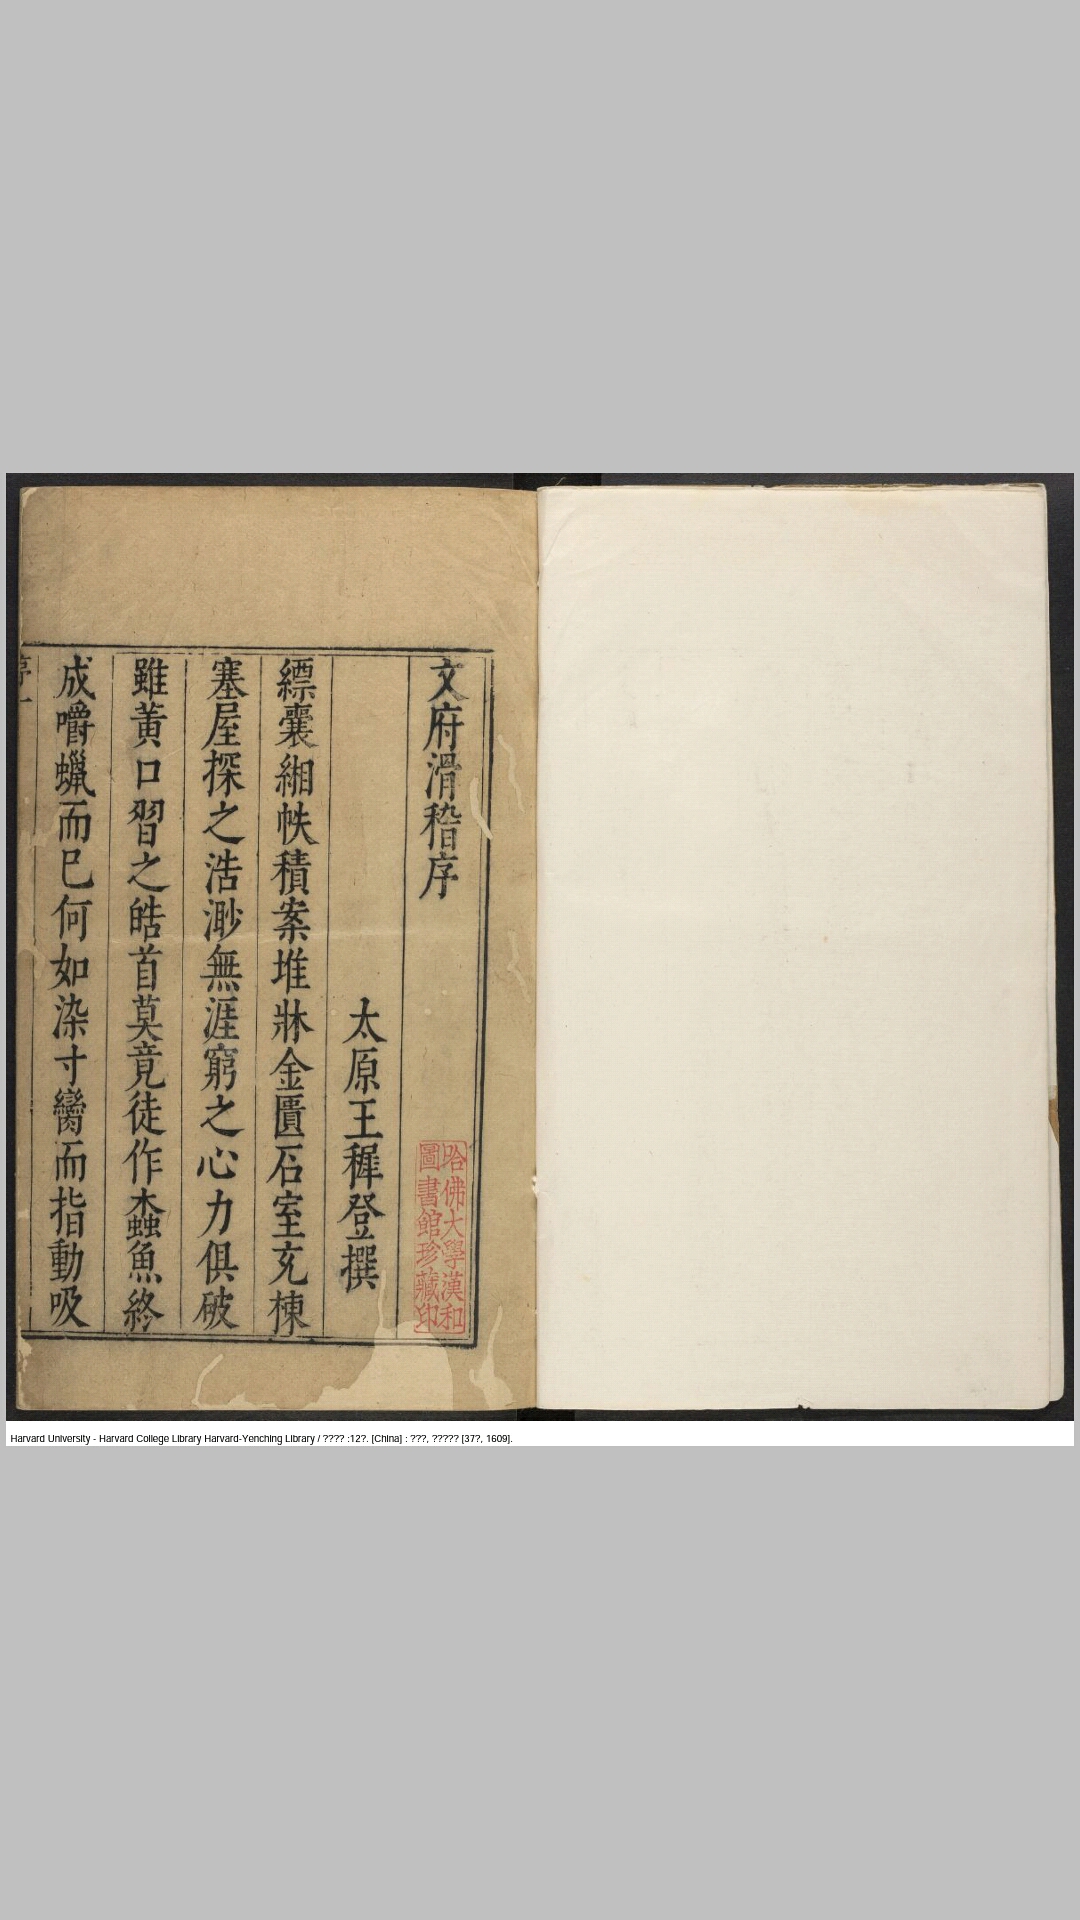 文府滑稽序
太原王穉登撰
縹囊緗帙積案堆牀金匱石室充棟
塞屋探之浩渺無涯窮之心力俱破
雖黃口習之皓首莫竟徒作蠹魚終
成嚼蠟而已何如染寸臠而指動吸
哈佛大學漢和
圖書館珍藏印
Harvard University - Harvard College Library Harvard-Yenching Library / ???? :12?. [China] : ???, ????? [37?, 1609].